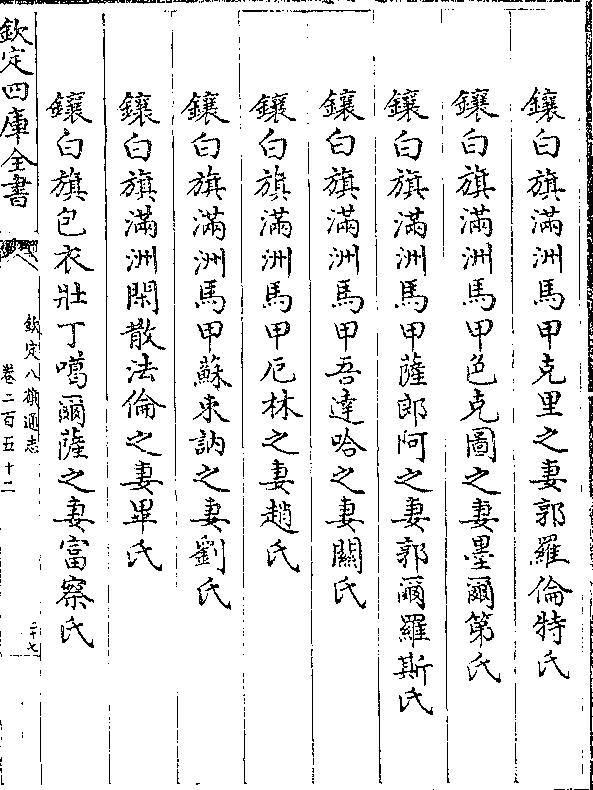 鑲白旗滿洲馬甲克里之妻郭羅倫特氏
鑲白旗滿洲馬甲色克圖之妻墨爾第氏
鑲白旗滿洲馬甲薩郎阿之妻郭爾羅斯氏
鑲白旗滿洲馬甲吾達哈之妻關氏
鑲白旗滿洲馬甲厄林之妻趙氏
鑲白旗滿洲馬甲蘇束訥之妻劉氏
鑲白旗滿洲閑散法倫之妻畢氏
鑲白旗包衣壯丁噶爾薩之妻富察氏
欽定四庫全書
欽定八旗通志
卷二百五十二
二十七